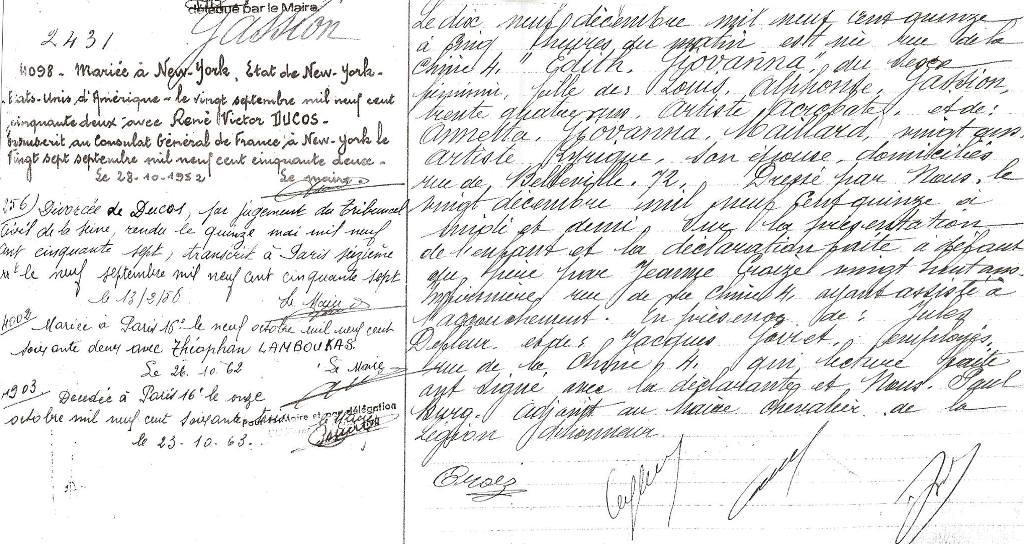 délégué par le Maire
Gassion
2431
4098 - Mariée à New-York, Etat de New-York -
Etats-Unis d'Amérique - le vingt septembre mil neuf cent
cinquante deux avec René Victor DUCOS -
Transcrit au Consulat Général de France à New-York le
vingt sept septembre mil neuf cent cinquante deux -
Le 28-10-1952
256) Divorcée de Ducos, par jugement du Tribunal
Civil de la Seine, rendu le quinze mai mil neuf
cent cinquante sept, transcrit à Paris sizième
le neuf septembre mil neuf cent cinquante sept
le 13/2/58 Le Maire
4002 Mariée à Paris 16e le neuf octobre mil neuf cent
soixante deux avec Théophan LAMBOUKAS
Le 26.10.62 Le Maire
1903 Décédée à Paris 16e le onze
octobre mil neuf cent soixante trois
le 23-10-63. Maire et par délégation
Le dix neuf décembre mil neuf cent quinze
à cinq heures du matin est née rue de la
Chine 4. "Edith, Giovanna" du sexe
féminin, fille de: Louis, Alphonse, Gassion,
trente quatre ans. Artiste Acrobate et de:
Annetta, Giovanna, Maillard, vingt ans
Artiste Lyrique, son épouse, domiciliés
rue de Belleville. 72. Dressé par Nous, le
vingt décembre mil neuf cent quinze à
et demi sur la présentation
de l'enfant et la déclaration faite à défaut
du père par Jeanne Croize vingt huit ans.
Infirmière, rue de la Chine 4. ayant assisté à
l'accouchement. En présence de: Jules
Defleur et de: Jacques Goviet, employés,
rue de la Chine 4. qui, lecture faite
ont signé avec la déclarante et Nous. Paul
Burg. adjoint au Maire Chevalier de la
Légion d'honneur.
Croize